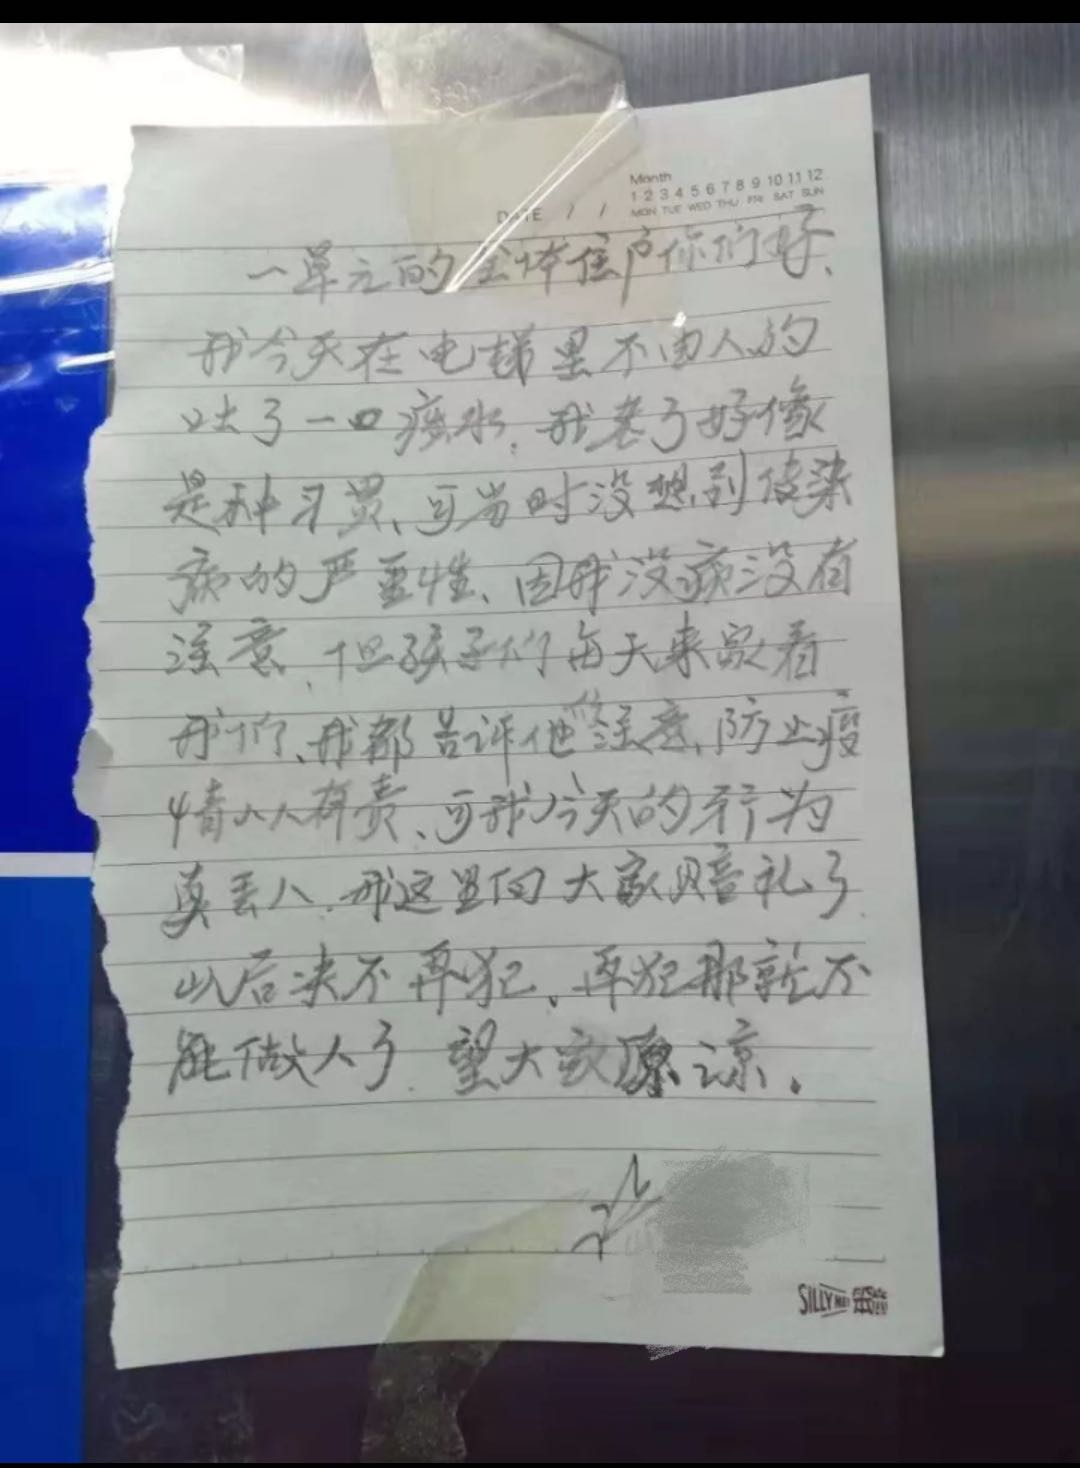 Month
1 2 3 4 5 6 7 8 9 10 11 12
DATE / / MON TUE WED THU FRI SAT SUN
一单元的全体住户你们好、
我今天在电梯里不由人的
吐了一口痰水,我老了好像
是种习贯、可当时没想到传染
病的严重性、因我没病没有
注意,但孩子们每天来家看
我们、我都告诉他们注意、防止疫
情人人有责、可我今天的行为
真丢人,我这里向大家赔礼了.
以后决不再犯、再犯那就不
能做人了.望大家原谅.
SILLY